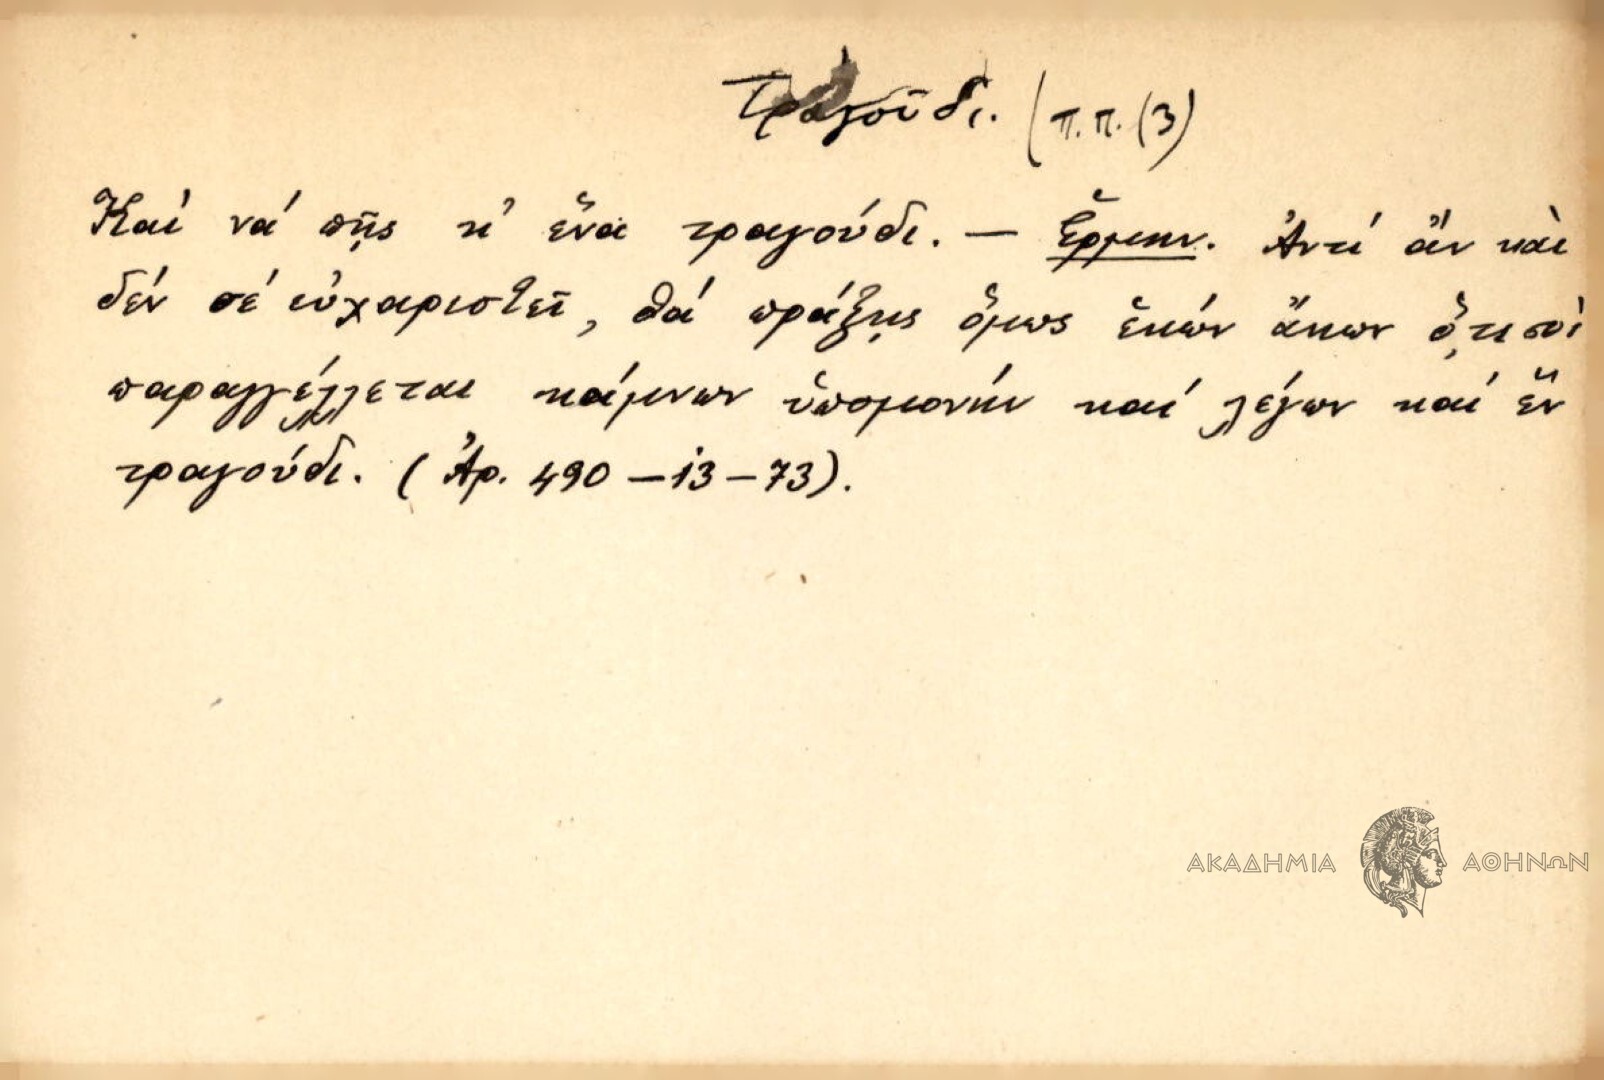 Τραγοῦδι. (π.π. (3)
Καί νά πῇς κ' ἕνα τραγούδι. — Ἑρμην. Ἀντί ἄν καὶ
δέν σέ εὐχαριστεῖ, θά πράξῃς ὅμως ἑκών ἄκων ὅ,τι σοὶ
παραγγέλλεται κάμνων ὑπομονήν καί λέγων καί ἕν
τραγούδι. (Ἀρ. 490 – 13 – 73).
ΑΚΑΔΗΜΙΑ ΑΘΗΝΩΝ